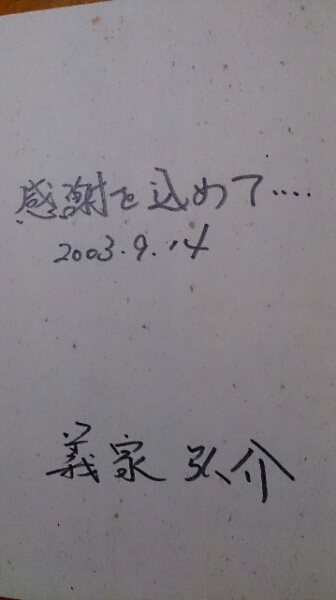 感謝を込めて....
2003.9.14
義家弘介